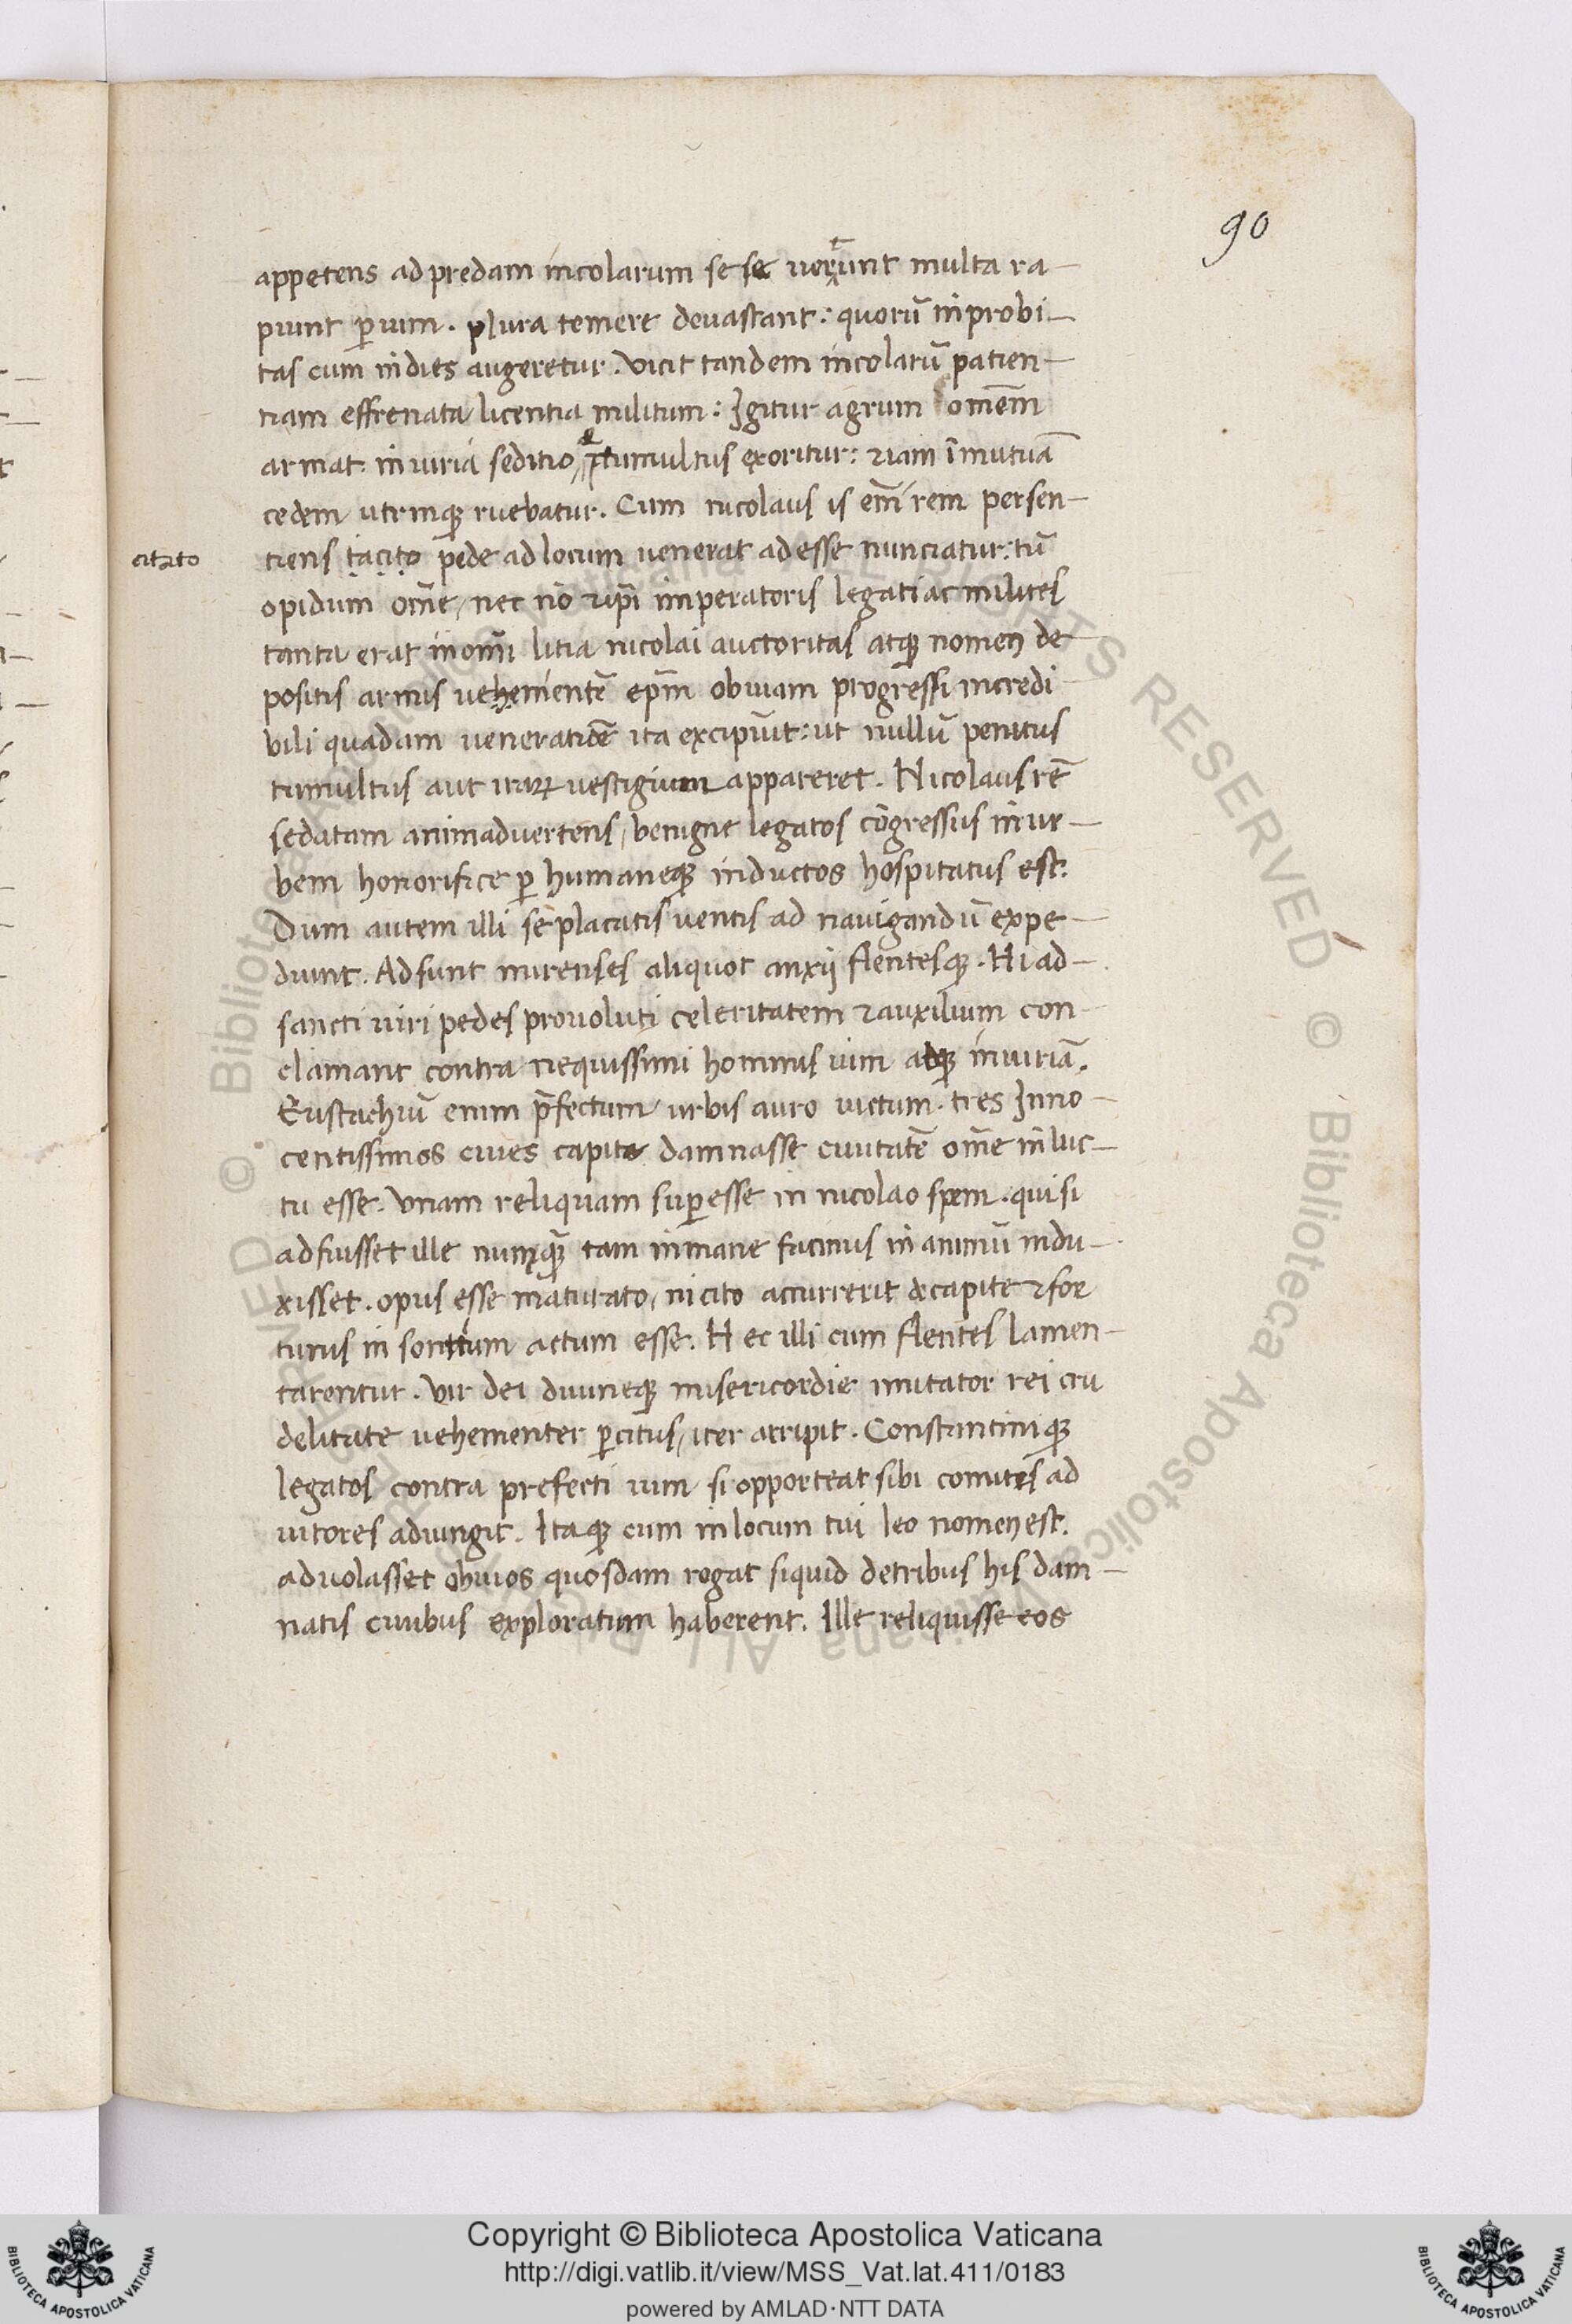 90
appetens ad predam incolarum se se uertunt multa ra-
piunt p̱uim. plura temere deuastant: quorū inprobi-
tas cum indies augeretur. vicit tandem incolarū patien-
tiam effrenata licentia militum: Igitur agrum omēm
armat iniuria seditio, tumultus exoritur: ⁊ iam ī mutuā
cedem utrinqꝫ ruebatur. Cum nicolaus is em̄ rem persen-
citato
tiens tacito pede ad locum uenerat adesse nunciatur: tū
opidum om̄e, nec nō ⁊ ip̄i imperatoris legati ac milites
tanta erat in om̄i litia nicolai auctoritas atqꝫ nomen de
positis armis uehementē ep̄m obuiam progressi incredi
bili quadam ueneratiōe ita excipiūt: ut nullū penitus
tumultus aut iraꝝ uestigium appareret. Nicolaus rē
sedatam animaduertens, benigne legatos cōgressus in ur-
bem honorifice ꝑ humaneqꝫ inductos hospitatus est:
Dum autem illi se placatis uentis ad nauigandū expe-
diunt. Adsunt mirenses aliquot anxij flentesqꝫ. Hi ad-
sancti uiri pedes prouoluti celeritatem ⁊ auxilium con-
clamant contra nequissimi hominis uim atqꝫ iniuriā.
Eustachiū enim p̄fectum urbis auro uictum. tres Inno-
centissimos ciues capite damnasse ciuitatē om̄e in luc-
tu esse. Vnam reliquam suꝑesse in nicolao spem. qui si
adfuisset ille numqꝫ̄ tam inmane facinus in animū indu-
xisset. opus esse maturato, ni cito accurrerit de capite ⁊ for
tunis in sontium actum esse. Hec illi cum flentes lamen-
tarentur. Vir dei diuineqꝫ misericordie imitator rei cru
delitate uehementer ꝑcitus, iter arripit. Constantiniqꝫ
legatos contra prefecti uim si opporteat sibi comites ad
iutores adiungit. Itaqꝫ cum in locum cui leo nomen est.
aduolasset obuios quosdam rogat siquid de tribus his dam-
natis ciuibus exploratum haberent. Ille reliquisse eos
© Biblioteca Apostolica Vaticana ALL RIGHTS RESERVED © Biblioteca Apostolica Vaticana ALL RIGHTS RESERVED
Copyright © Biblioteca Apostolica Vaticana
http://digi.vatlib.it/view/MSS_Vat.lat.411/0183
powered by AMLAD·NTT DATA
BIBLIOTECA APOSTOLICA VATICANA
BIBLIOTECA APOSTOLICA VATICANA